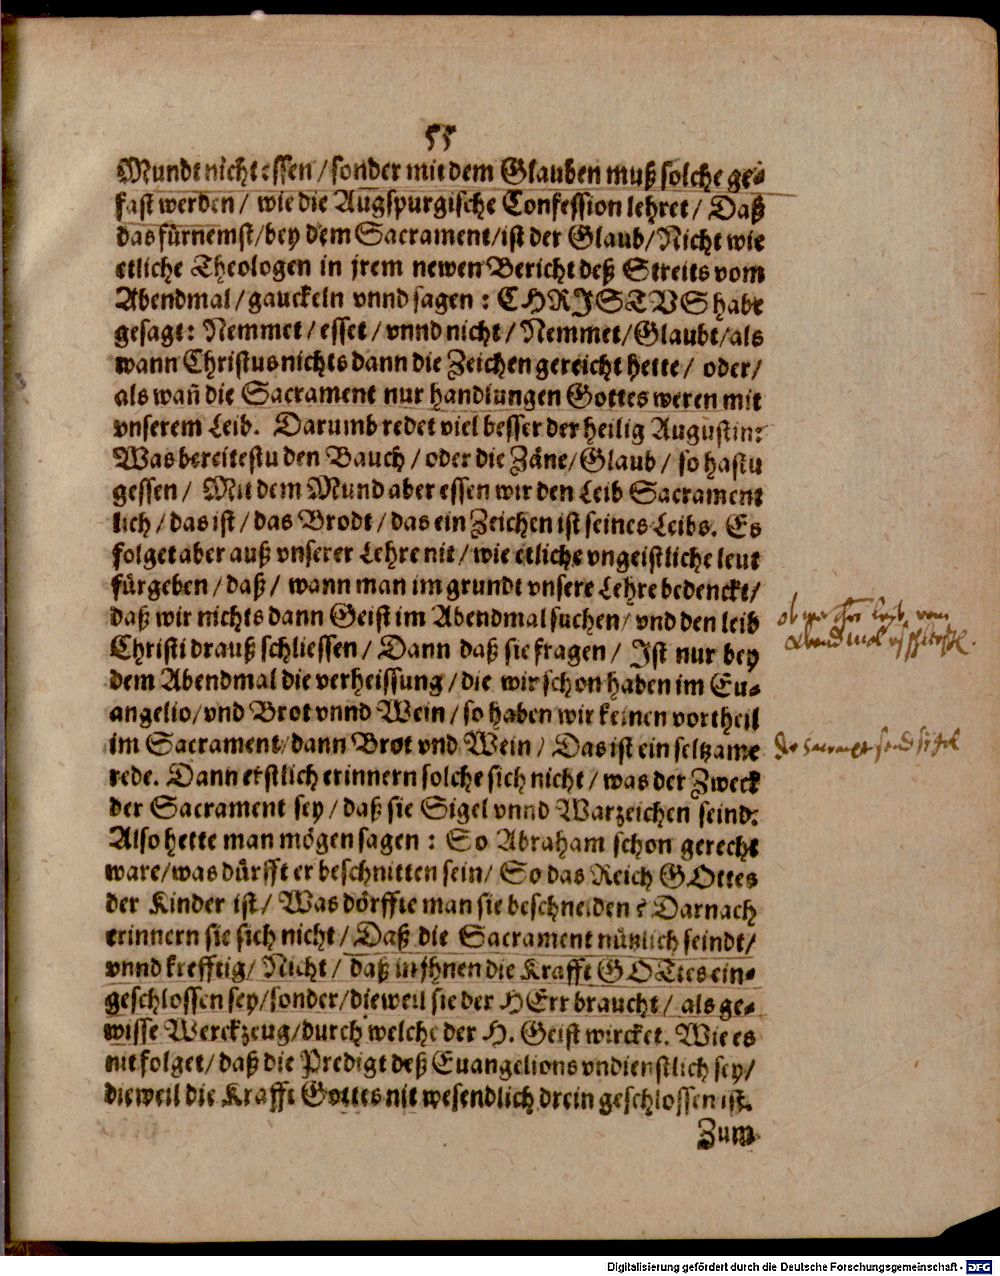 55
Mundt nicht essen / sonder mit dem Glauben muß solche ge-
fast werden / wie die Augspurgische Confession lehret / Daß
das fürnemst / bey dem Sacrament / ist der Glaub / Nicht wie
etliche Theologen in jrem newen Bericht deß Streits vom
Abendmal / gauckeln vnnd sagen : CHRISTVS habe
gesagt : Nemmet / esset / vnnd nicht / Nemmet / Glaubt / als
wann Christus nichts dann die Zeichen gereicht hette / oder /
als wañ die Sacrament nur handlungen Gottes weren mit
vnserem Leib. Darumb redet viel besser der heilig Augustin:
Was bereitestu den Bauch / oder die Zäne / Glaub / so hastu
gessen / Mit dem Mund aber essen wir den Leib Sacrament
lich / das ist / das Brodt / das ein Zeichen ist seines Leibs. Es
folget aber auß vnserer Lehre nit / wie etliche vngeistliche leut
fürgeben / daß / wann man im grundt vnsere Lehre bedenckt /
daß wir nichts dann Geist im Abendmal suchen / vnd den leib
Christi drauß schliessen / Dann daß sie fragen / Ist nur bey
dem Abendmal die verheissung / die wir schon haben im Eu-
angelio / vnd Brot vnnd Wein / so haben wir keinen vortheil
im Sacrament / dann Brot vnd Wein / Das ist ein seltzame
rede. Dann erstlich erinnern solche sich nicht / was der Zweck
der Sacrament sey / daß sie Sigel vnnd Warzeichen seind.
Also hette man mögen sagen : So Abraham schon gerecht
ware / was dürfft er beschnitten sein / So das Reich GOttes
der Kinder ist / Was dörffte man sie beschneiden ? Darnach
erinnern sie sich nicht / Daß die Sacrament nützlich seindt /
vnnd krefftig / Nicht / daß in jhnen die Krafft GOTtes ein-
geschlossen sey / sonder / dieweil sie der HErr braucht / als ge-
wisse Werckzeug / durch welche der H. Geist wircket. Wie es
nit folget / daß die Predigt deß Euangelions vndienstlich sey /
dieweil die Krafft Gottes nit wesendlich drein geschlossen ist.
Zum
Digitalisierung gefördert durch die Deutsche Forschungsgemeinschaft - DFG